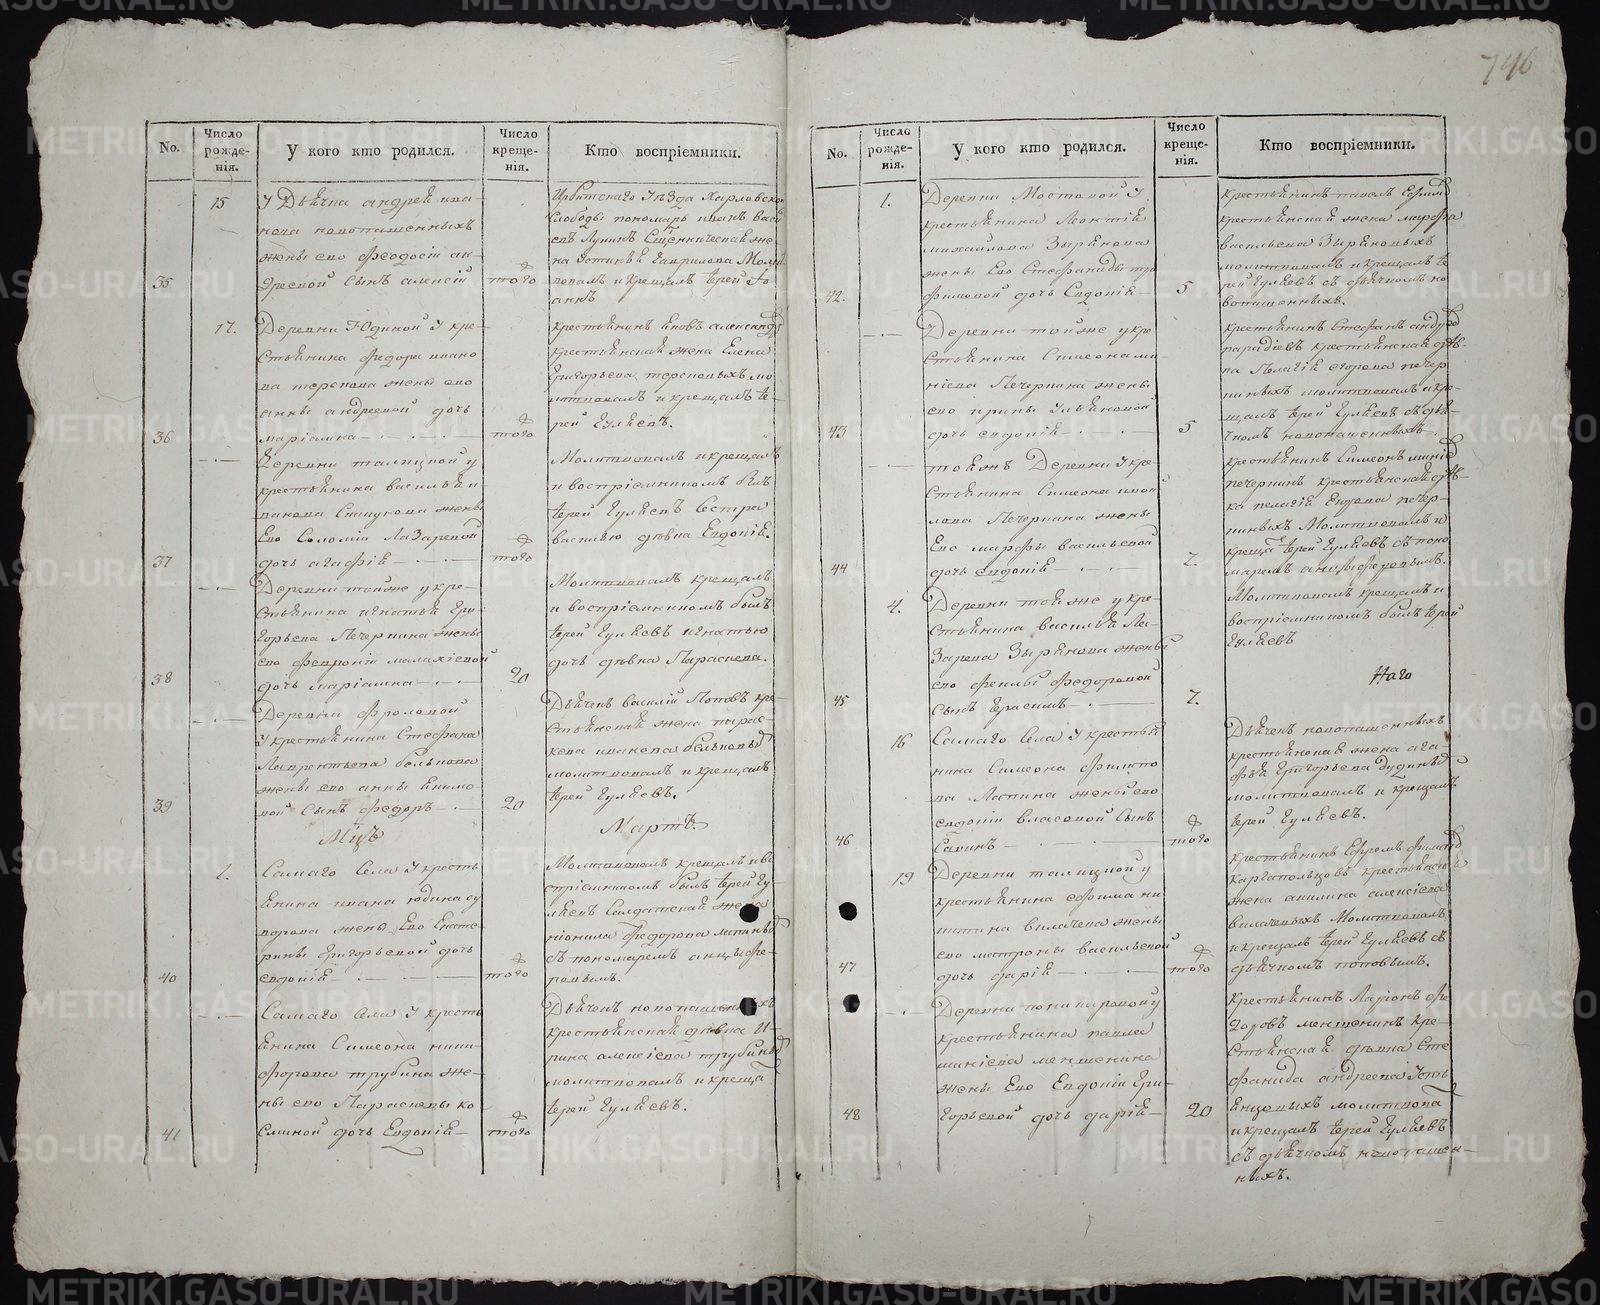 746
No.
Число рожде-нія.
У кого кто родился.
Число креще-нія.
Кто воспріемники.
15
У Дьячка андрея ива-
нова новопашенныхъ
жены ево Феодосіи ан-
35
дреевой Сынъ алексій
того
Ирбитскаго Уѣзда Харловской
Слободы пономарь иванъ
жена
и крещалъ Іерей Іо-
аннъ
17.
Деревни Юдиной У кре-
стьянина Федора ивано
ва терскова жены ево
анны андреевой дочь
36
маріамна
того
крестьянинъ яковъ
крестьянская жена Елена
Григорьева терсковыхъ мо-
литвовалъ и крещалъ Іе-
рей Гуляевъ.
Деревни талицкой у
крестьянина василья и
ванова жены
Ево Соломіи Лазаревой
37
дочь агафія
того
Молитвовалъ и крещалъ
и воспріемникомъ былъ
Іерей Гуляевъ Сестра
василію дѣвка Евдокія.
Деревни тойже у кре-
стьянина игнатья Гри-
горьева Печеркина жены
ево февроніи малахіевой
38
дочь маріамна
20
Молитвовалъ крещалъ
и воспріемникомъ былъ
Іерей Гуляевъ игнатью
дочь дѣвка Параскева.
Деревни фроловой
У крестьянина Стефана
Лаврентьева белькова
жены ево анны
39
Сынъ федоръ
20
Дьячекъ василій Поповъ кре-
стьянская жена парас-
кева иванова бельковыхъ
молитвовалъ и крещалъ
Іерей Гуляевъ.
Мцъ
Мартъ.
1.
Самаго Села У кресть
янина ивана юдина
жены Ево Екате
рины Григорьевой дочь
40
евдокія
того
Молитвовалъ крещалъ и во
спріемникомъ былъ Іерей Гу-
ляевъ Солдатская жена
Федорова
съ пономаремъ анцыфе-
ровымъ.
Самаго Села У кресть
янина Симеона ники-
форова трубина же-
ны ево Параскевы ко
41
Сминой дочь Евдокія
того
Дьячекъ новопашенныхъ
крестьянская дѣвка И-
рина алексіева трубиныхъ
молитвовалъ и крещалъ
Іерей Гуляевъ.
No.
Число рожде-нія.
У кого кто родился.
Число креще-нія.
Кто воспріемники.
1.
Деревни Мостовой У
крестьянина Леонтія
михайлова Зырянова
жены Ево Стефаниды тро
42.
фимовой дочь Евдокія
5
крестьянинъ павелъ
крестьянская жена марфа
васильева Зыряновыхъ
молитвовалъ и крещалъ Іе
рей Гуляевъ съ дьячкомъ но
вопашенныхъ.
Деревни тойже у кре
стьянина Симеона
Печеркина жены
ево ирины Ульяновой
43
дочь евдокія
5
крестьянинъ Стефанъ
крестьянская дѣв-
ка Пелагія егорова печер
киныхъ молитвовалъ и кре-
щалъ Іерей Гуляевъ съ дья-
чкомъ новопашенныхъ.
тояжъ Деревни У кре-
стьянина Симеона
Печеркина жены
Ево марфы васильевой
44
дочь евдокія
2.
крестьянинъ Симеонъ
печеркинъ крестьянская дѣв-
ка пелагія Егорова печер-
киныхъ Молитвовалъ и
крещалъ Іерей Гуляевъ съ поно
маремъ анцыферовымъ.
4.
Деревни тойже у кре
стьянина василья Ла-
зарева Зырянова жены
ево феклы федоровой
45
Сынъ Герасимъ
7.
Молитвовалъ крещалъ и
воспріемникомъ былъ Іерей
Гуляевъ
16
Самаго Села У крестья
нина Симеона филипо
ва Лапина жены ево
евдокіи власовой Сынъ
46
Савинъ
того
Дьячекъ новопашенныхъ
крестьянская жена ага
фья Григорьева
молитвовалъ и крещалъ
Іерей Гуляевъ.
19
Деревни талицкой у
крестьянина ефима ни
китина вилачева жены
ево матроны васильевой
47
дочь дарія
того
крестьянинъ Ефремъ
каргапольцовъ крестьянская
жена акилина алексіева
вилачевыхъ Молитвовалъ
и крещалъ Іерей Гуляевъ съ
дьячкомъ поповымъ.
Деревни поникаровой у
крестьянина павла
меншенина
жены Ево Евдокіи Гри
48
горьевой дочь дарія
20
крестьянинъ Ларіонъ фе
доровъ меншенинъ кре-
стьянская дѣвка Сте
фанида андреева Усть
янцовыхъ молитвова
и крещалъ Іерей Гуляевъ
съ дьячкомъ новопашен-
ныхъ.
METRIKI.GASO-URAL.RU